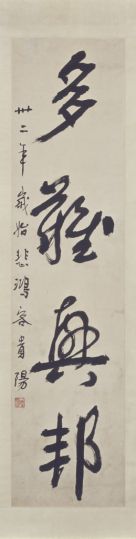 多難興邦
卅二年歲始悲鴻客貴陽